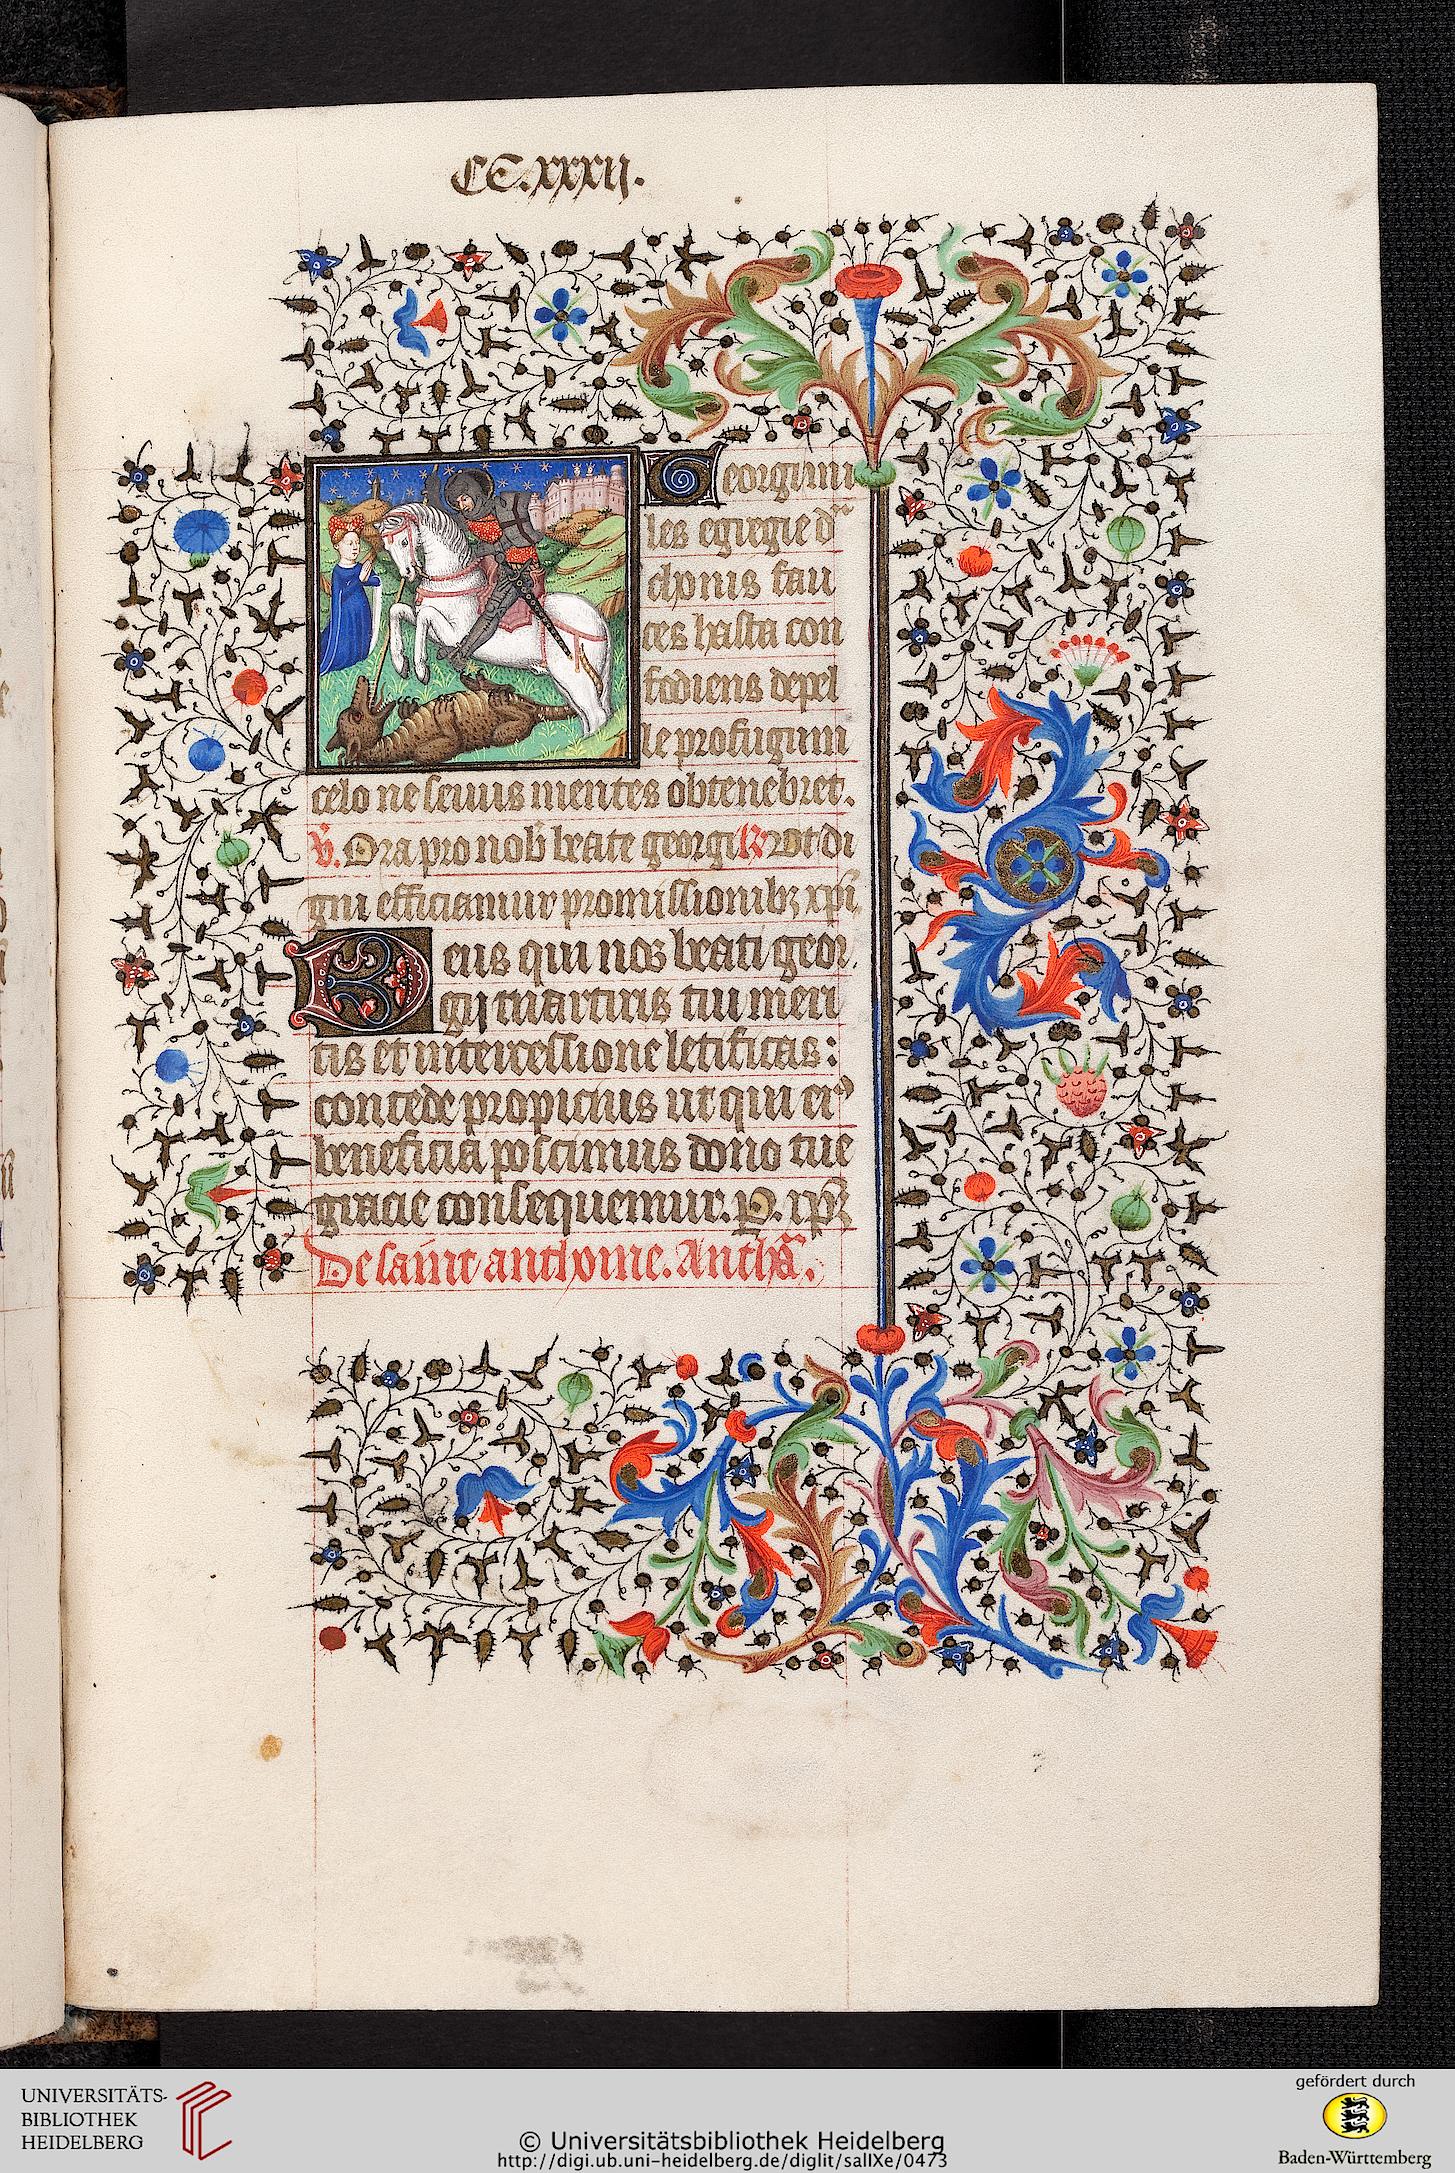 CC.xxxij.
Georgi mi
les egregie dra
chonis fau
ces hasta con
fodiens depel
le profugum
celo ne seuus mentes obtenebret.
V. Ora pro nob beate georgi R Vt di
gni efficiamur promissionibz xpi
Deus qui nos beati geor
gij martiris tui meri
tis et intercessione letificas:
concede propicius ut qui eius
beneficia poscimus dono tue
gracie consequemur. P. xpm
De saint anthoine. Antha.
UNIVERSITÄTS-
BIBLIOTHEK
HEIDELBERG
© Universitätsbibliothek Heidelberg
http://digi.ub.uni-heidelberg.de/diglit/salIXe/0473
gefördert durch
Baden-Württemberg